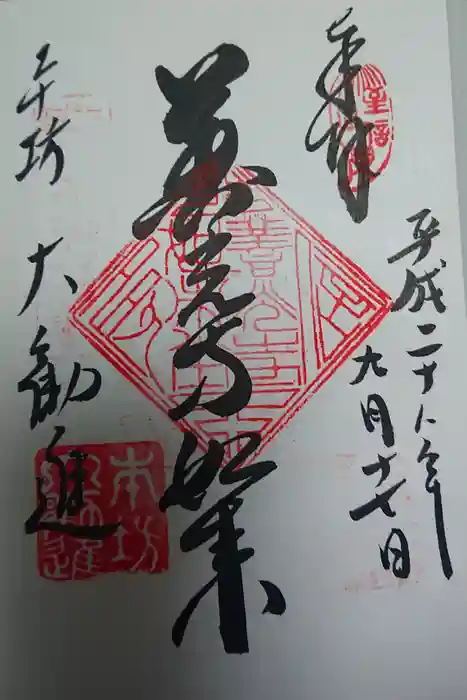 奉拝
平成二十八年
九月十七日
善光寺如来
本坊
大勧進
本坊